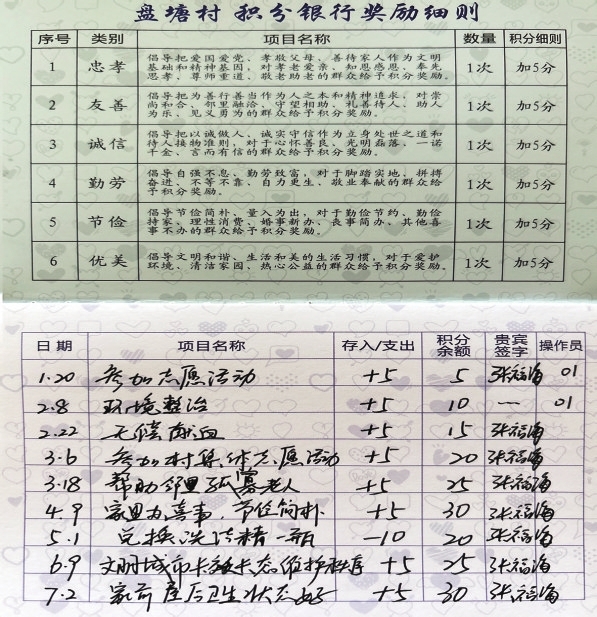 盘塘村 积分银行奖励细则
序号 类别 项目名称 数量 积分细则
1 忠孝 倡导把爱国爱党、孝敬父母、善待家人作为文明
基础和精神基因,对孝老爱亲、知恩感恩、奉先
思孝、尊师重道、敬老助老的群众给予积分奖励。 1次 加5分
2 友善 倡导把为善行善当作为人之本和精神追求,对崇
尚和合、邻里融洽、守望相助、礼善待人、助人
为乐、见义勇为的群众给予积分奖励。 1次 加5分
3 诚信 倡导把以诚做人、诚实守信作为立身处世之道和
待人接物准则,对于心怀善良、光明磊落、一诺
千金、言而有信的群众给予积分奖励。 1次 加5分
4 勤劳 倡导自强不息、勤劳致富,对于脚踏实地、拼搏
奋进、不等不靠、自力更生、敬业奉献的群众给
予积分奖励。 1次 加5分
5 节俭 倡导节俭简朴、量入为出,对于勤俭节约、勤俭
持家、理性消费、婚事新办、丧事简办、其他喜
事不办的群众给予积分奖励。 1次 加5分
6 优美 倡导文明和谐、生活和美的生活习惯,对于爱护
环境、清洁家园、热心公益的群众给予积分奖励。 1次 加5分
日期 项目名称 存入/支出 积分余额 贵宾签字 操作员
1.20 参加志愿活动 +5 5 张福海 01
2.8 环境整治 +5 10 — 01
2.22 无偿献血 +5 15 张福海
3.6 参加村集体志愿活动 +5 20 张福海
3.18 帮助邻里孤寡老人 +5 25 张福海
4.9 家里办喜事,节俭简朴 +5 30 张福海
5.1 兑换洗洁精一瓶 -10 20 张福海
6.9 文明城市 维护秩序 +5 25 张福海
7.2 家前屋后卫生状态好 +5 30 张福海